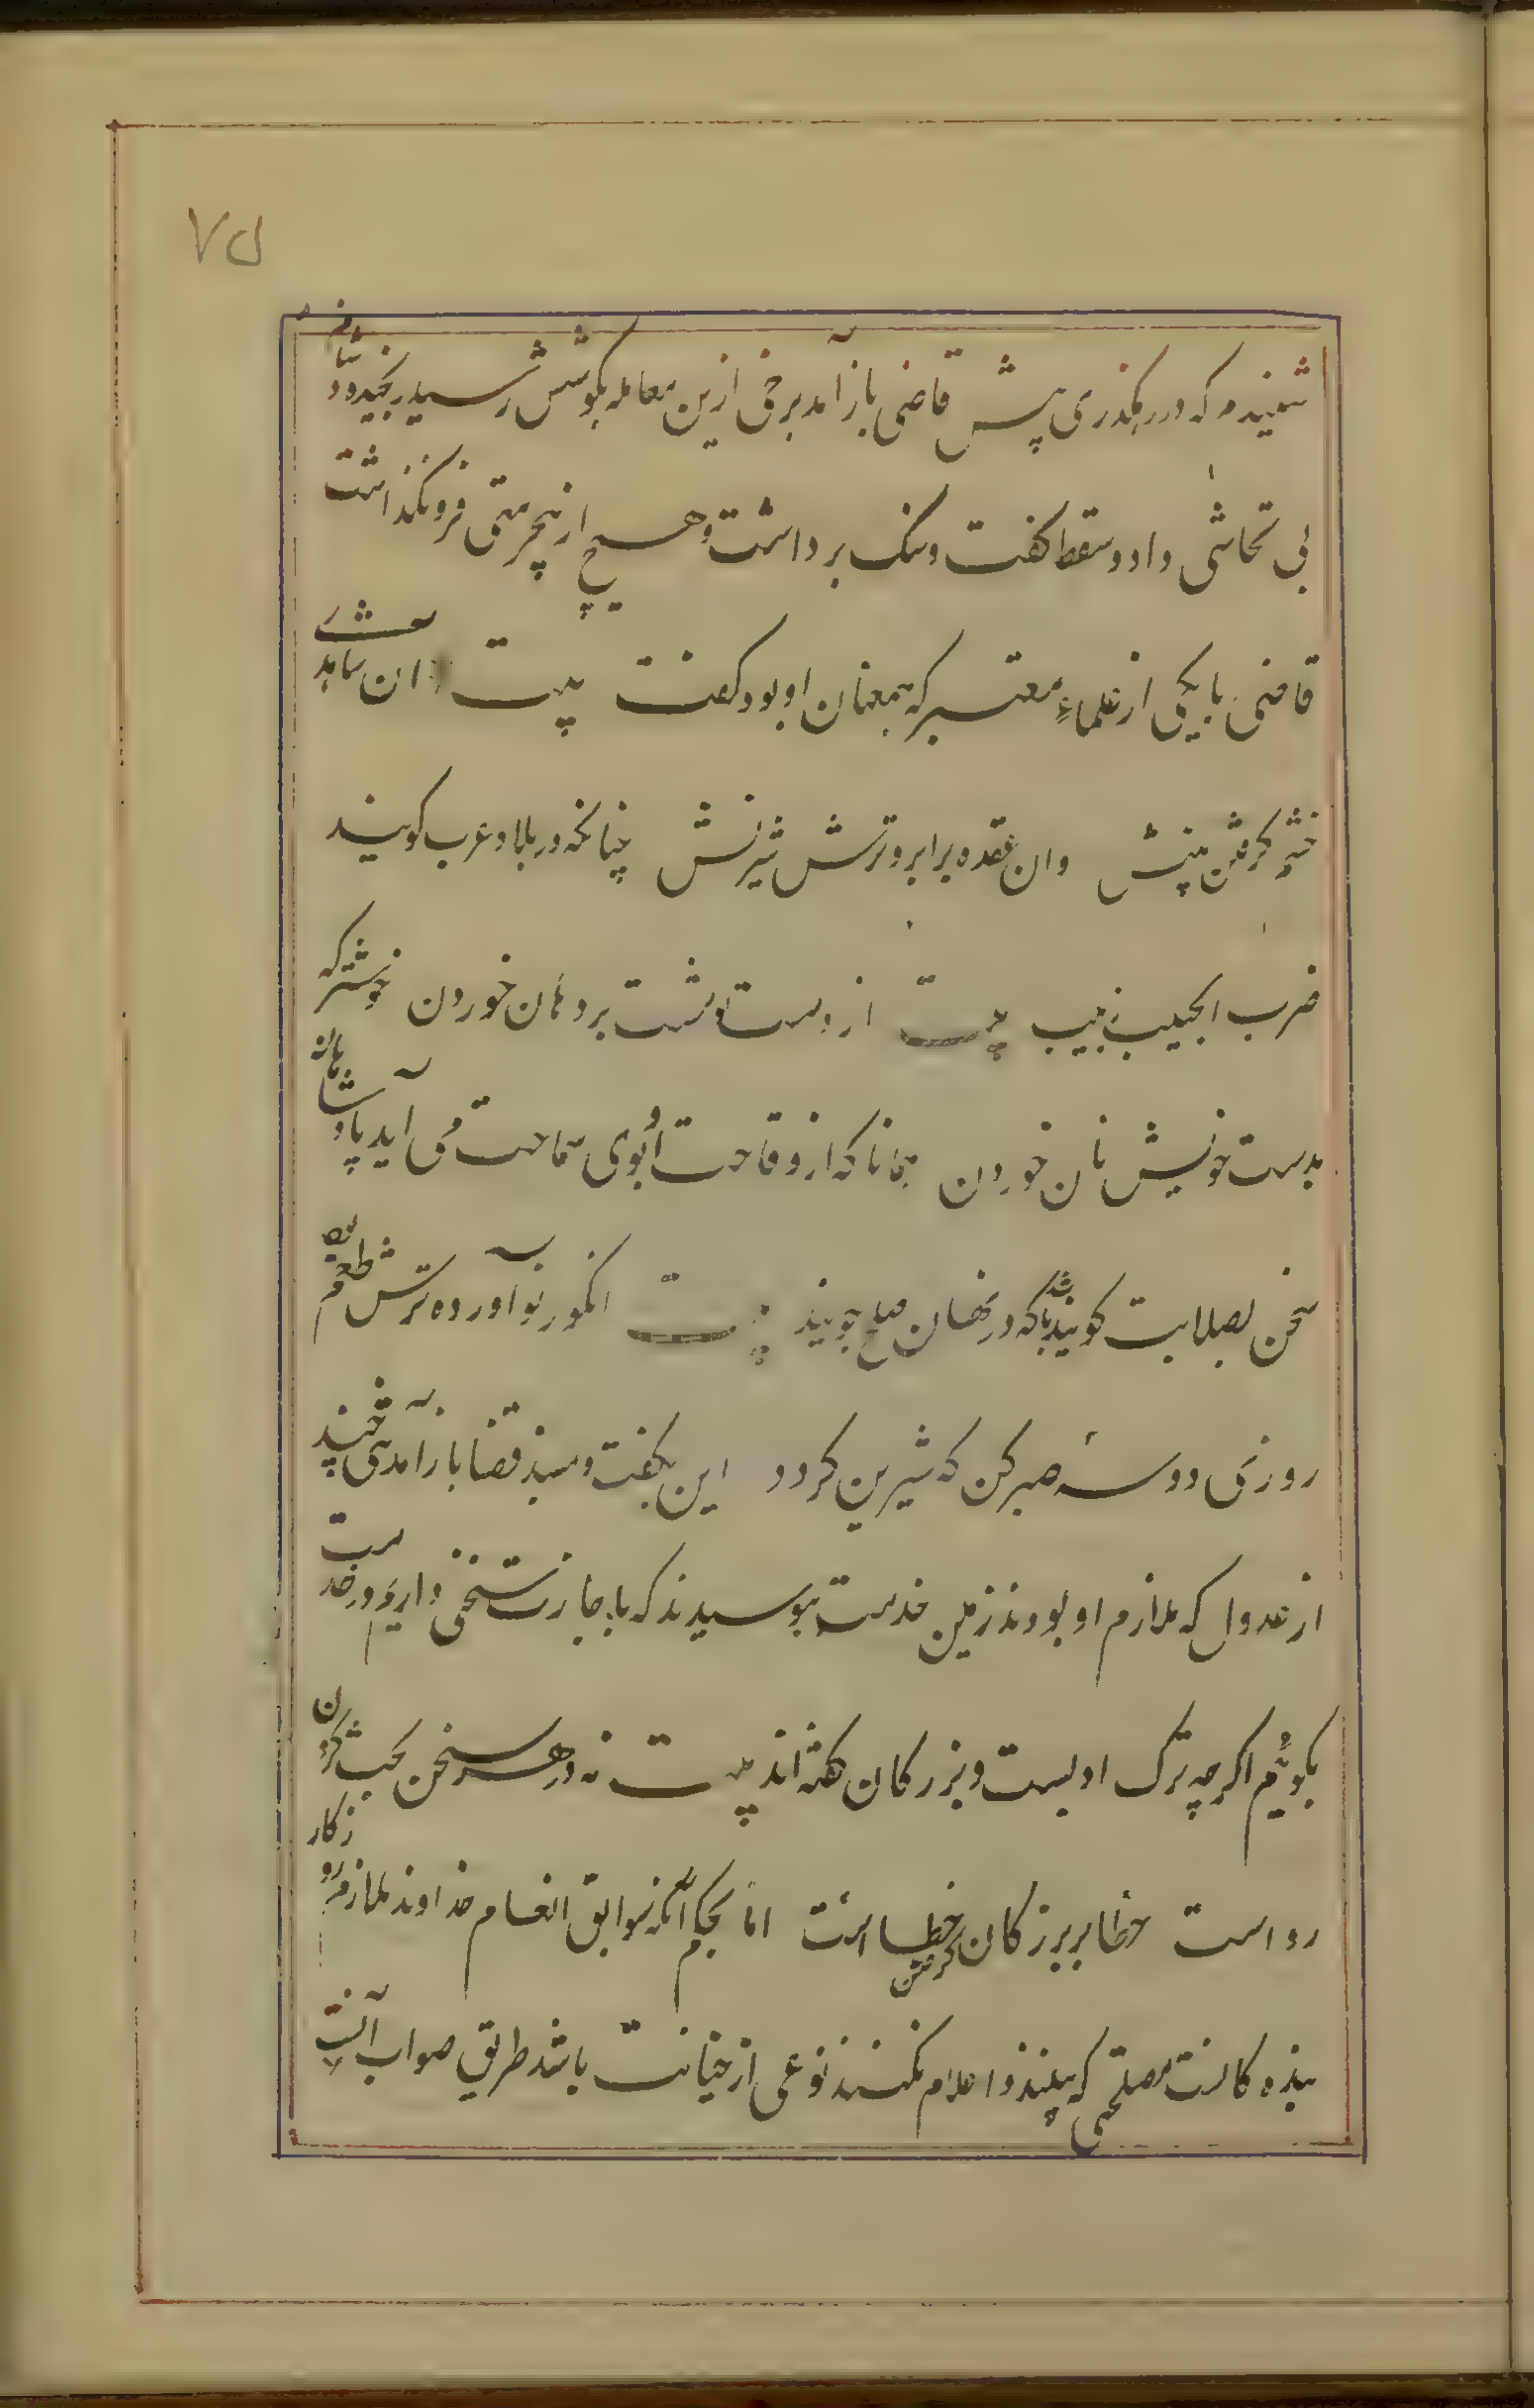 ۷۵
شنیدم که در رهکذری پیش قاضی باز آمد برخی ازین معامله بکوشش رسید رنجید و دشنام
بی تحاشی داد و سقط کفت و سنک برداشت و هیچ از بیحرمتی فرونکذاشت
قاضی با یکی از علماء معتبر که همعنان او بود کفت بیت ان شاهدی
خشم کرفتن بینش وان عقده بر ابرو ترش شیرنش چنانکه در بلاد عرب کویند
ضرب الحبیب زبیب بیت از دست تو مشت بر دهان خوردن خوشتر که
بدست خویش نان خوردن همانا که از وقاحت او بوی سماحت می آید پادشاهان
سخن بصلابت کویند باشد که در نهان صلح جویند بیت انکور نو آورده ترش طعم بود
روزی دو سه صبر کن که شیرین کردد این بکفت و بمسند قضا باز آمد تنی چند
از عدول که ملازم او بودند زمین خدمت ببوسیدند که باجازت سخنی داریم در خدمت
بکوئیم اکرچه ترک ادبست و بزرکان کفته اند بیت نه در هر سخن بحث کردن
رواست خطا بر بزرکان کرفتن خطاست اما بحکم آنکه سوابق انعام خداوند ملازم روزکار
بنده کانست مصلحتی که بینند و اعلام نکنند نوعی از خیانت باشد طریق صواب آنست